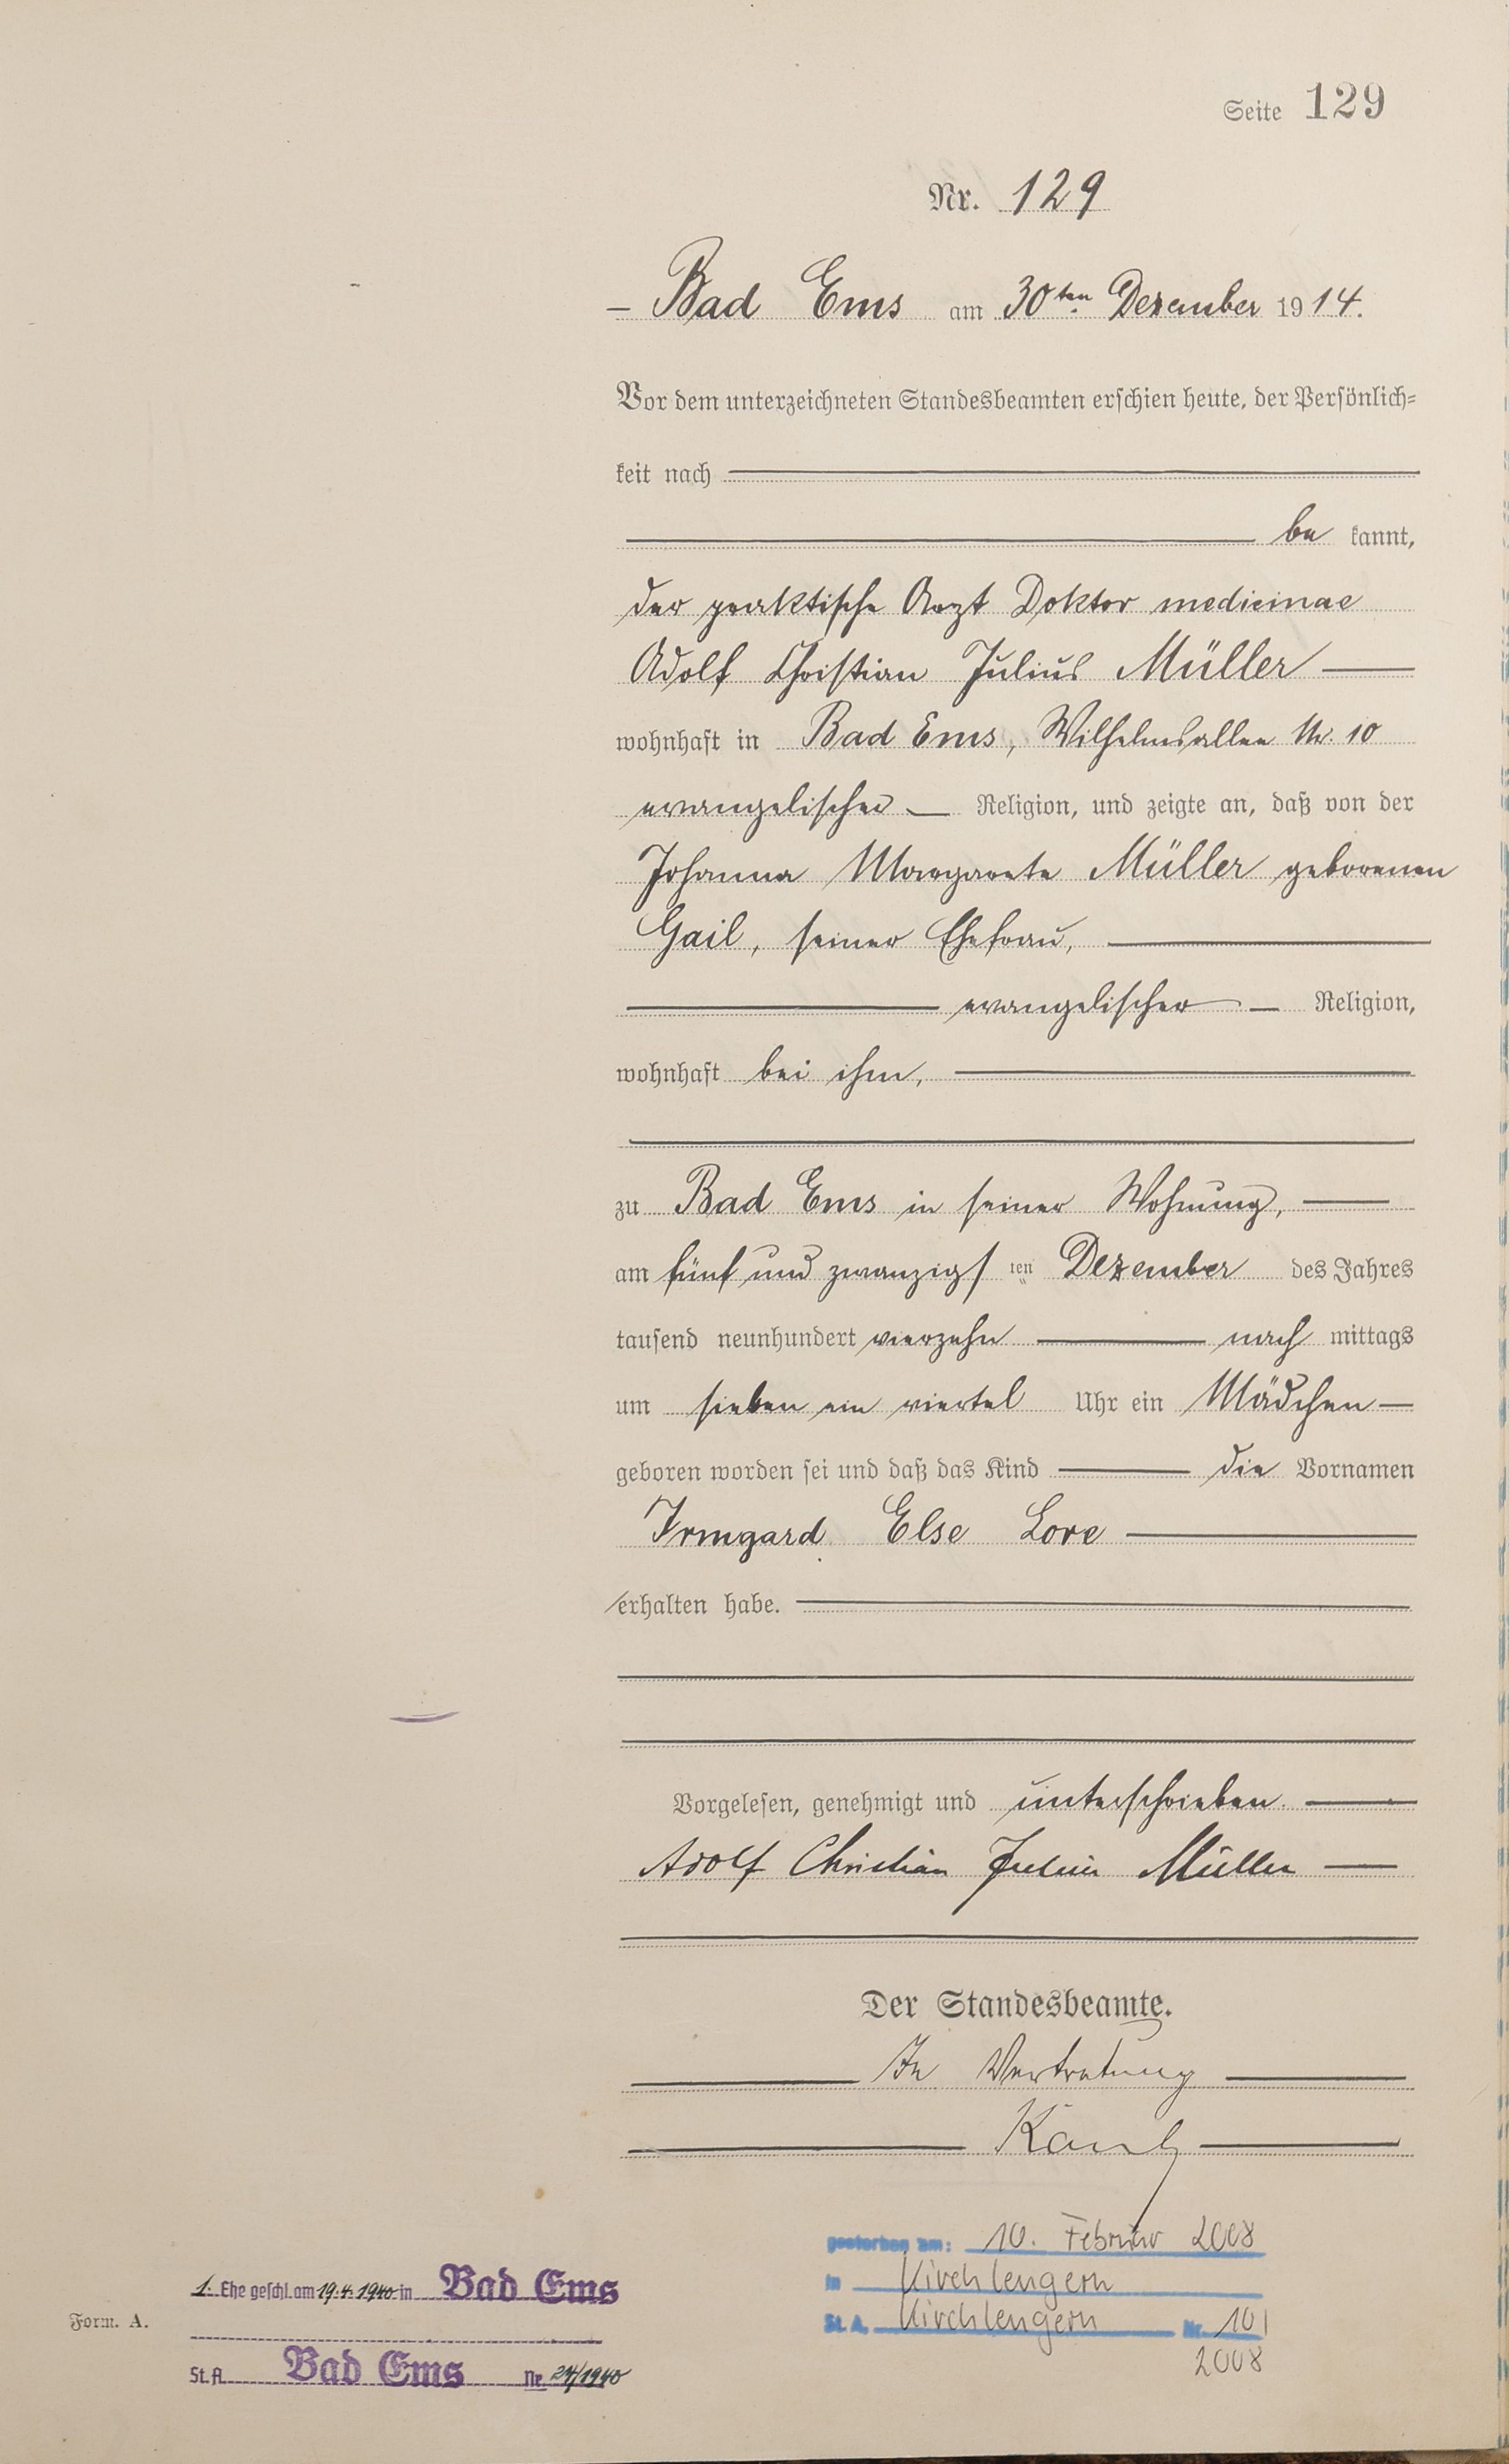 Seite 129
Nr. 129
– Bad Ems am 30ten Dezember 1914.
Vor dem unterzeichneten Standesbeamten erschien heute, der Persönlich=
keit nach
be kannt,
der praktische Arzt Doktor medicinae
Adolf Christian Julius Müller
wohnhaft in Bad Ems, Wilhelmsallee Nr. 10
evangelischer Religion, und zeigte an, daß von der
Johanna Margarete Müller geborenen
Gail, seiner Ehefrau,
evangelischer Religion,
wohnhaft bei ihm,
zu Bad Ems in seiner Wohnung,
am fünf und zwanzigsten Dezember des Jahres
tausend neunhundert vierzehn nach mittags
um sieben ein viertel Uhr ein Mädchen
geboren worden sei und daß das Kind die Vornamen
Irmgard Else Lore
erhalten habe.
Vorgelesen, genehmigt und unterschrieben.
Adolf Christian Julius Müller
Der Standesbeamte.
In Vertretung
gestorben am: 10. Februar 2008
in Kirchlengern
St. A. Kirchlengern Nr. 10/
2008
1. Ehe geschl. am 19.4.1940 in Bad Ems
St. A. Bad Ems Nr. 24/1940
Form. A.